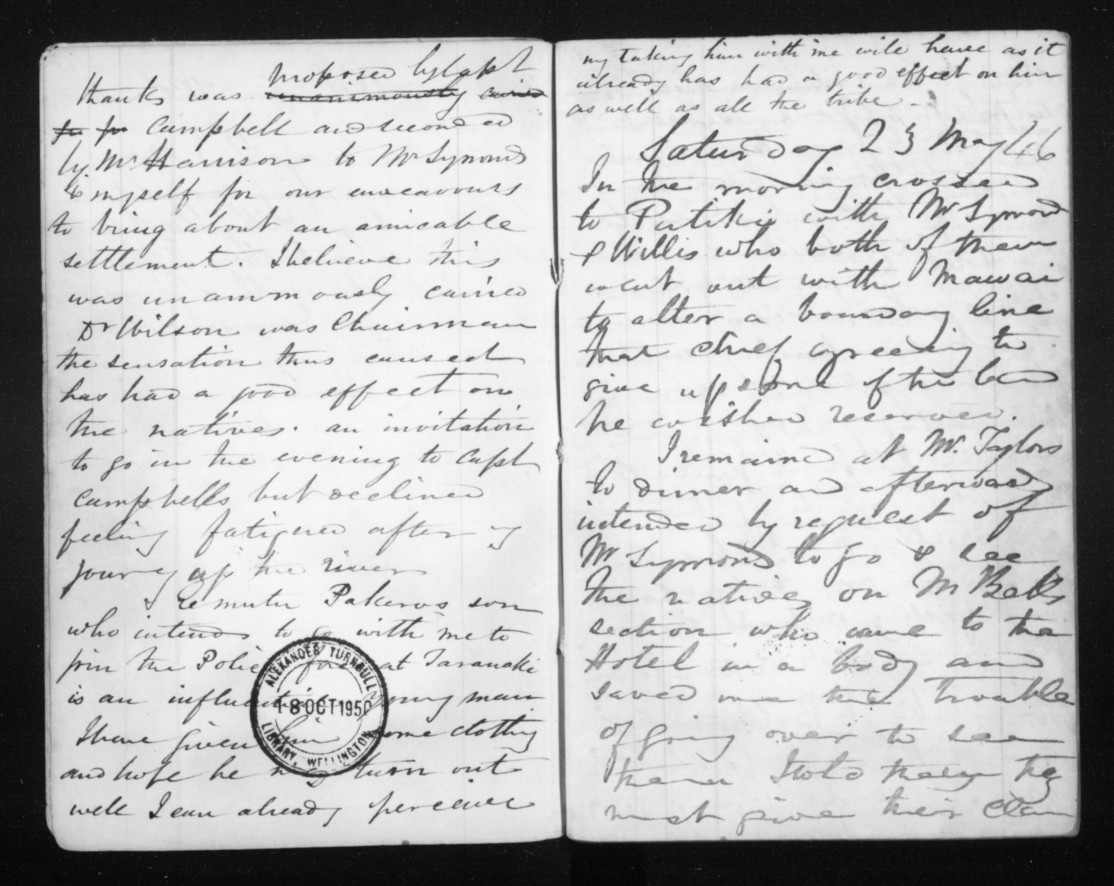 proposed by Capt
thanks was unanimously carried
for for Campbell and seconded
by Mr Harrison to Mr Symonds
& myself for our endeavours
to bring about an amicable
settlement. I believe this
was unanimously carried
Dr Wilson was Chairman
the sensation thus caused
has had a good effect on
the natives. an invitation
to go in the evening to Capt
Campbells but declined
feeling fatigued after my
journey up the river
Pakeros son
who intends to go with me to
join the Police force at Taranaki
is an influential young man
I have given him some clothing
and hope he may turn out
well I can already perceive
ALEXANDER TURNBULL
18 OCT 1950
LIBRARY, WELLINGTON
my taking him with me will have as it
already has had a good effect on him
as well as all the tribe.
Saturday 23 May 46
In the morning crossed
to Putikie with Mr Symonds
& Willis who both of them
went out with Mawai
to alter a boundary line
that chief agreeing to
give up some of the land
he wished reserved.
I remained at Mr Taylors
to dinner and afterwards
intended by request of
Mr Symonds to go & see
the natives on Mr Bells
section who came to the
Hotel in a body and
saved me the trouble
of going over to see
them I told them they
must give their claim